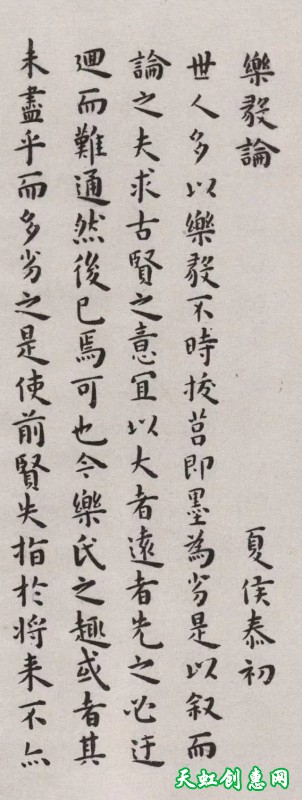 樂毅論 夏侯泰初
世人多以樂毅不時拔莒即墨為劣是以叙而
論之夫求古賢之意冝以大者遠者先之必迂
迴而難通然後已焉可也今樂氏之趣或者其
未盡乎而多劣之是使前賢失指於将来不亦
天虹创意网